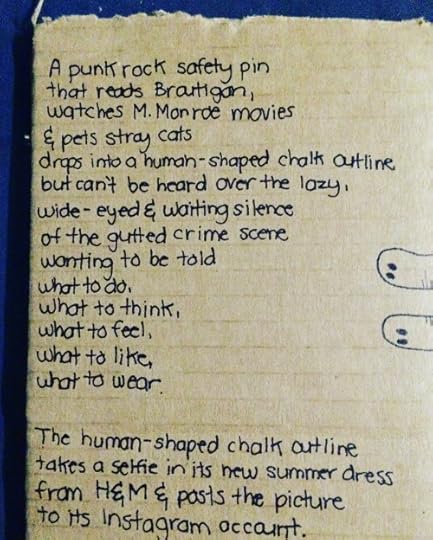 A punk rock safety pin
that reads Brautigan,
watches M. Monroe movies
& pets stray cats
drops into a human-shaped chalk outline
but can't be heard over the lazy,
wide-eyed & waiting silence
of the gutted crime scene
wanting to be told
what to do,
what to think,
what to feel,
what to like,
what to wear.
The human-shaped chalk outline
takes a selfie in its new summer dress
from H&M & posts the picture
to its Instagram account.